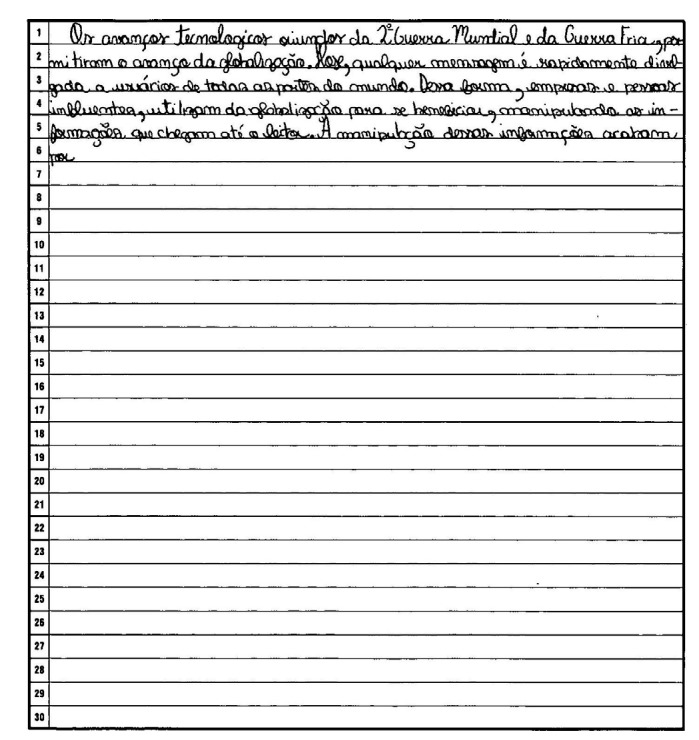 1 Os avanços temologicos oiundos da 2ª Guerra Mundial e da Guerra Fria, per
2 mitiram o avanço da globalização. Hoje, qualquer mensagem é rapidamente divul
3 gada a usuários de todas as partes do mundo. Dessa forma, empresas e pessoas
4 influentes, utilizam da globalização para se beneficiar, manipulando as in-
5 formações que chegam até o leitor. A manipulação dessas informações acabam
6 por
7
8
9
10
11
12
13
14
15
16
17
18
19
20
21
22
23
24
25
26
27
28
29
30